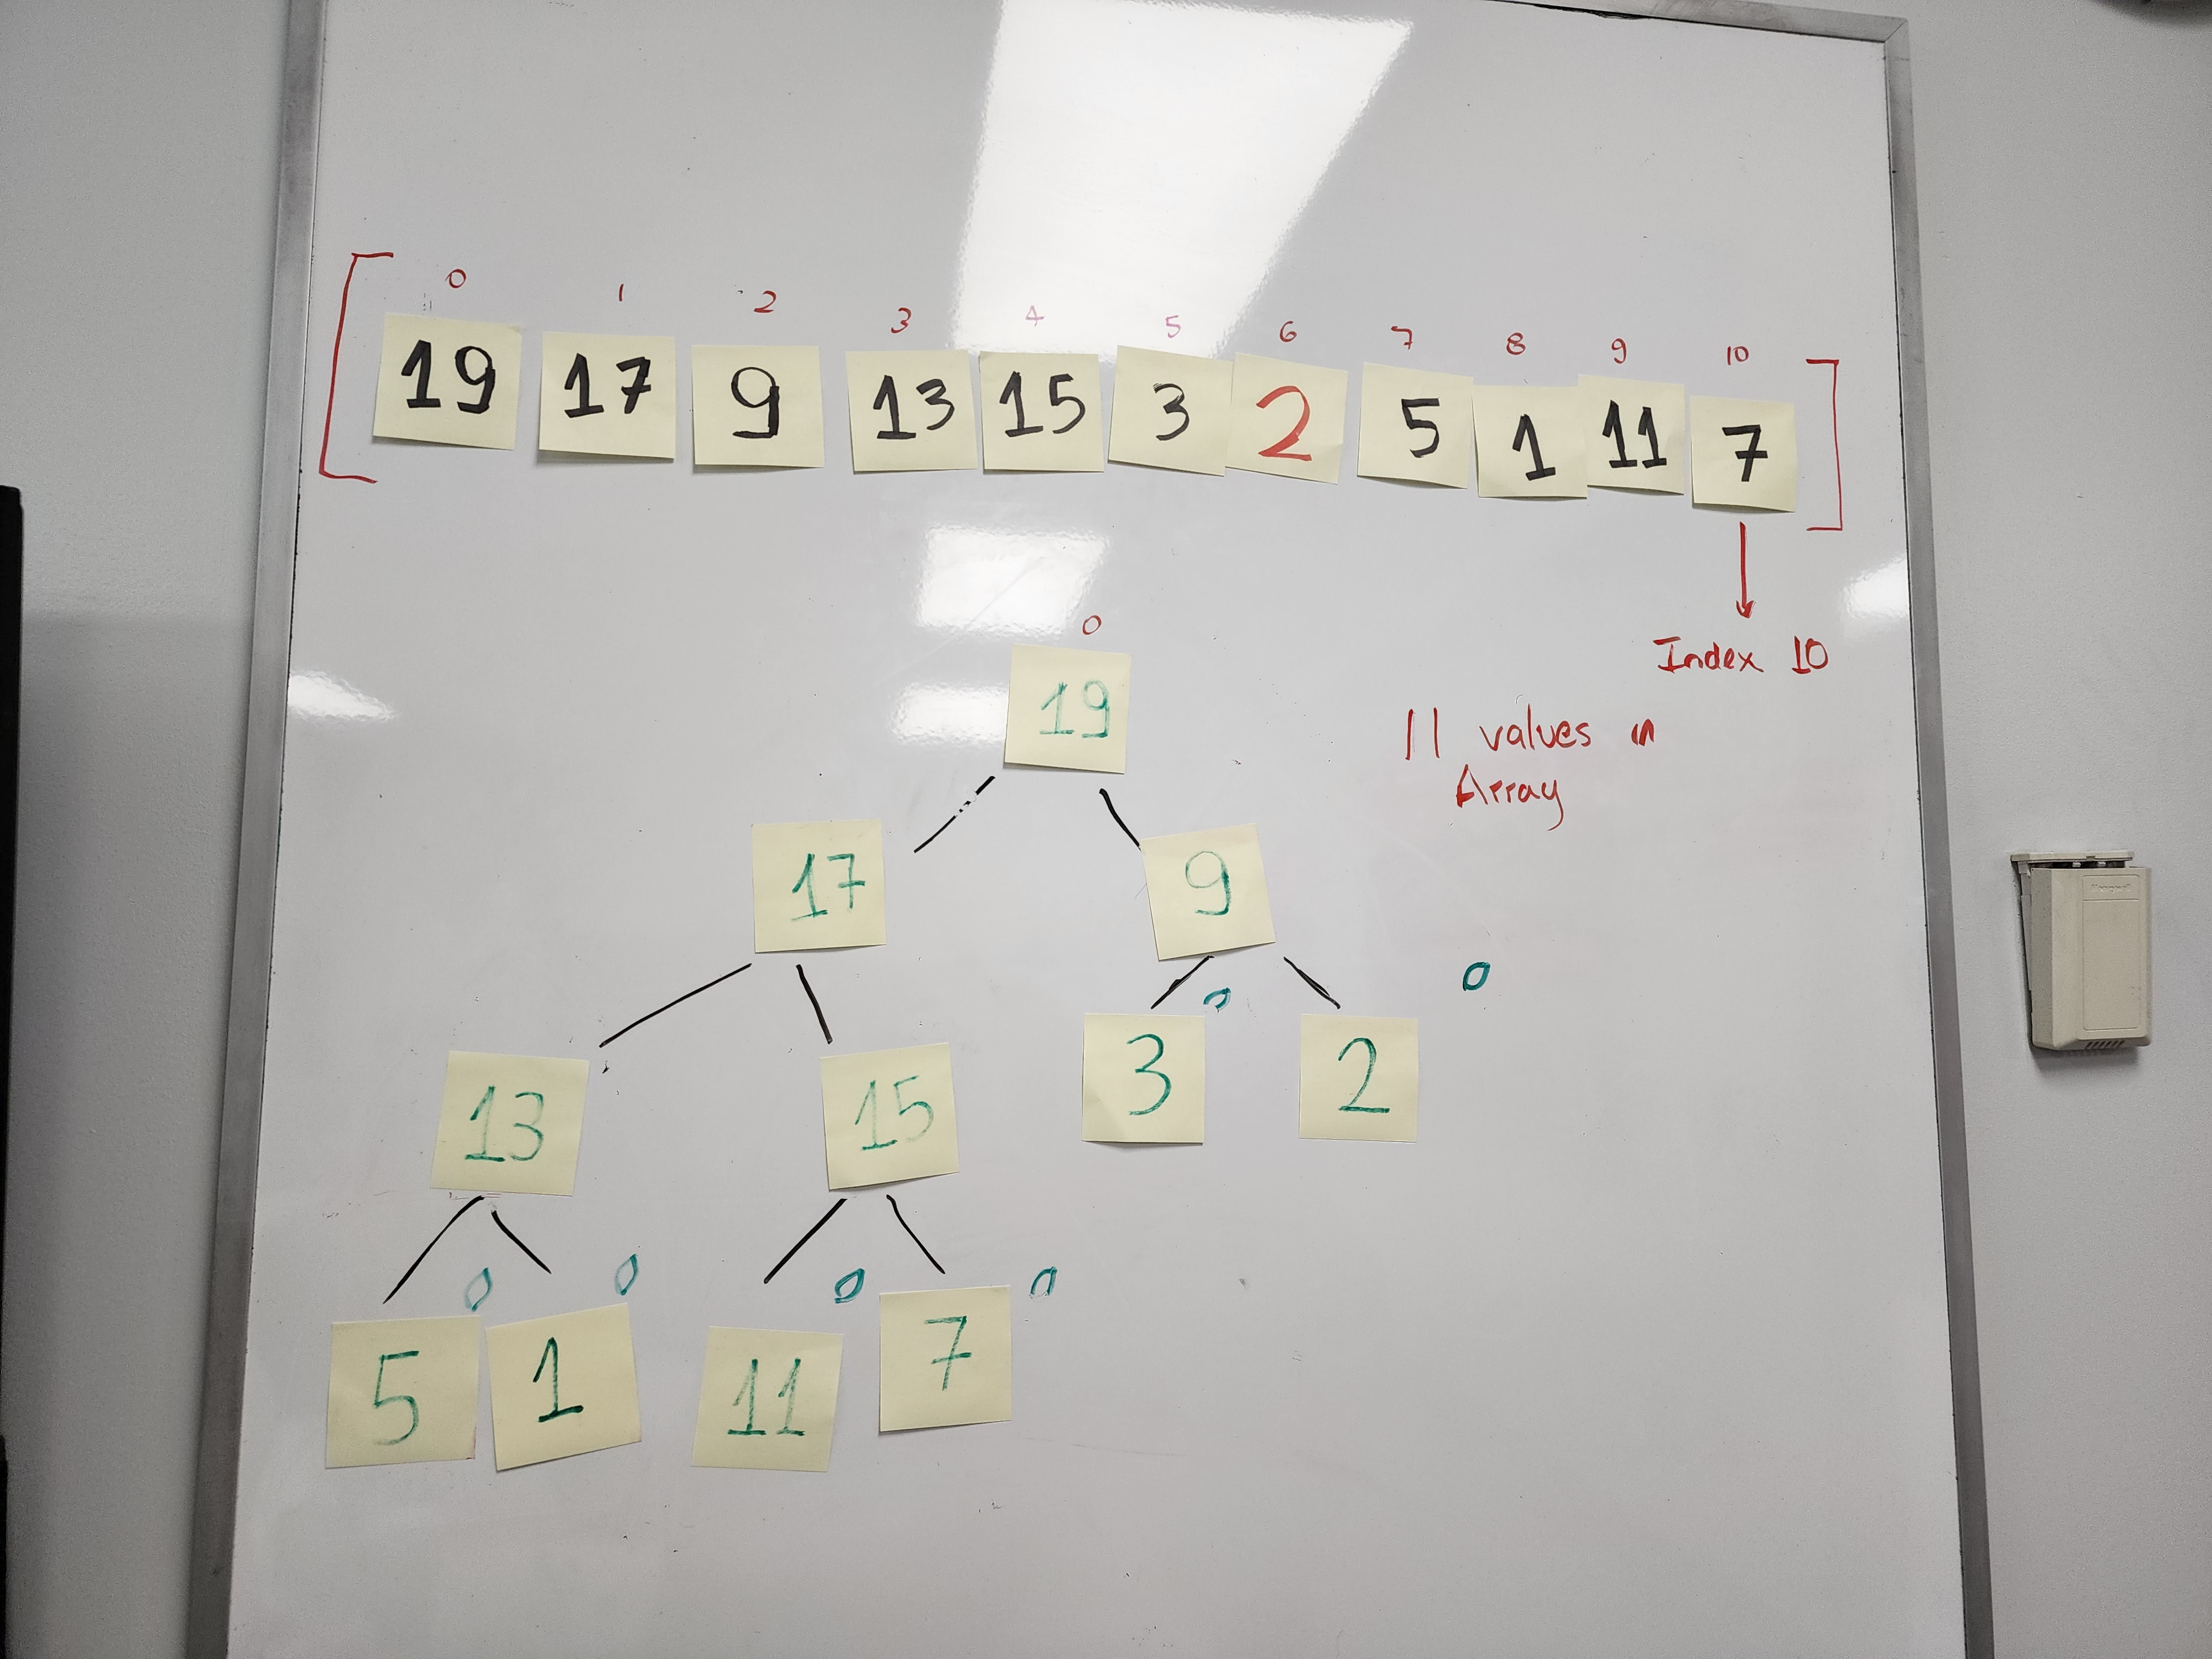 0 1 2 3 4 5 6 7 8 9 10
[ 19 17 9 13 15 3 2 5 1 11 7 ]
Index 10
0
19
11 values in
Array
17 9
0 0
13 15 3 2
0 0 0 0
5 1 11 7